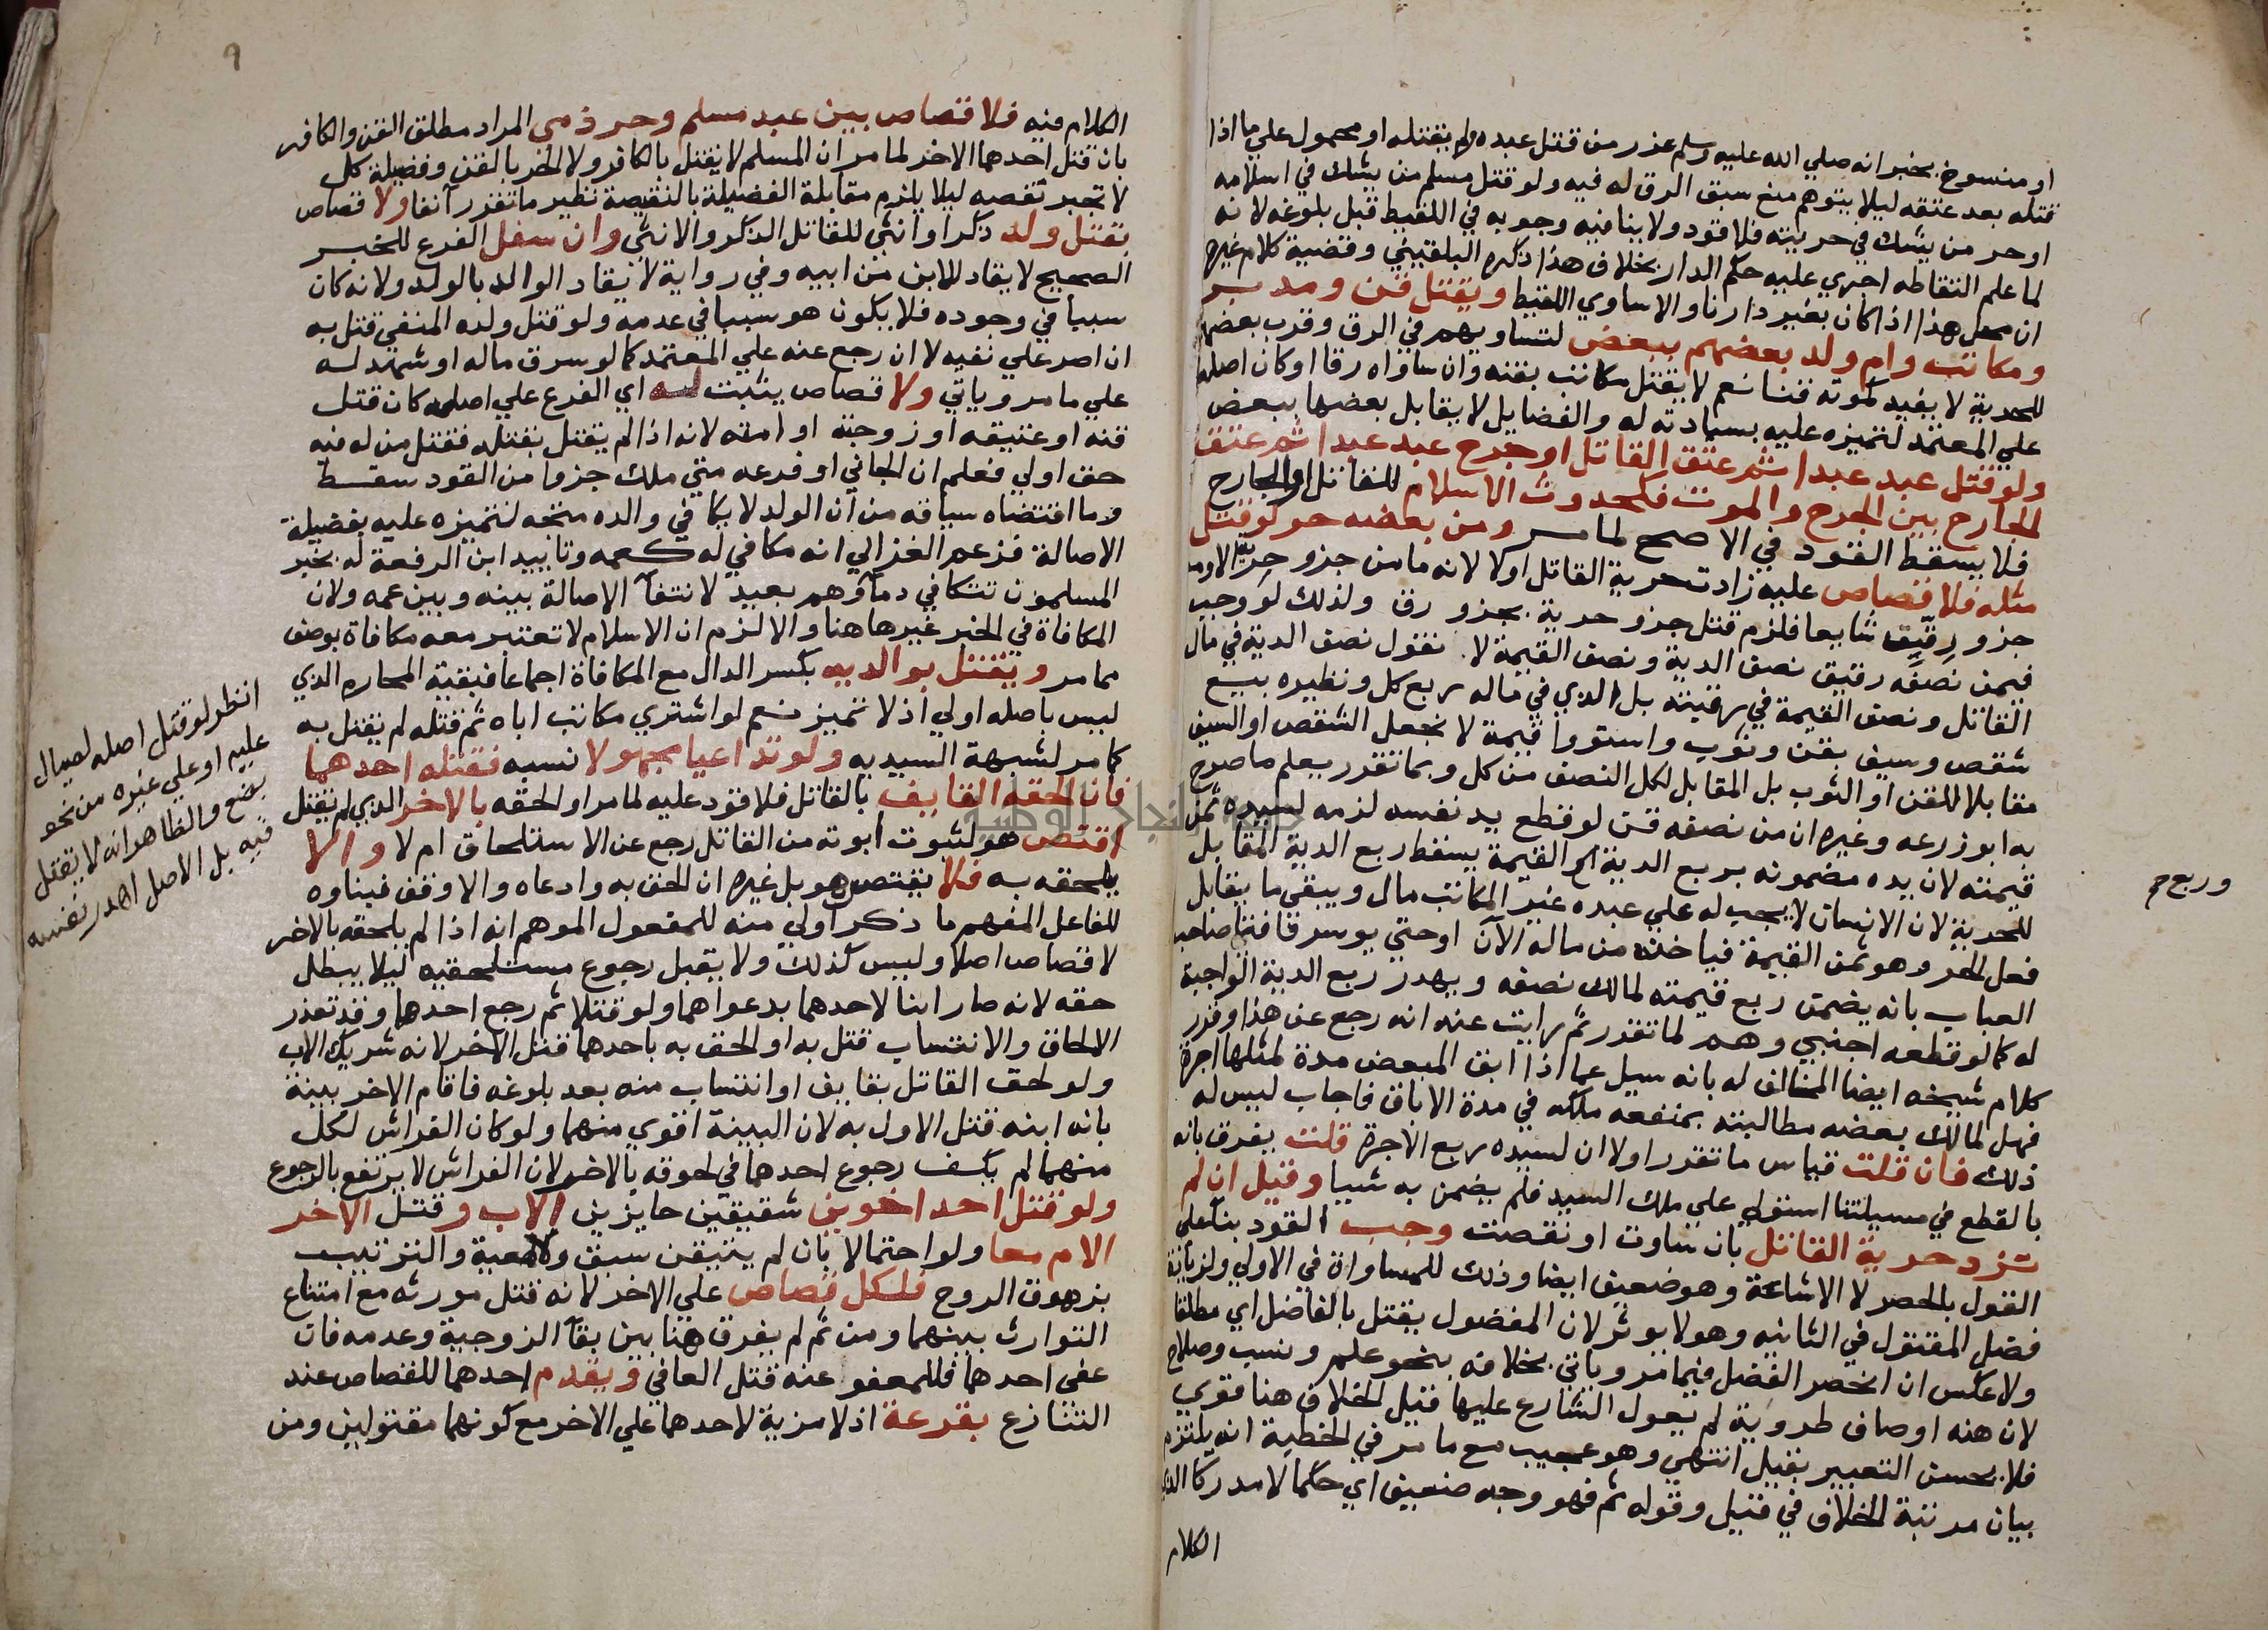 او منسوخ بخبر انه صلي الله عليه وسلم عزر من قتل عبده ولم يقتله او محمول علي ما اذا
قتله بعد عتقه ليلا يتوهم منع سبق الرق له فيه ولو قتل مسلم من يشك في اسلامه
او حر من يشك في حريته فلا قود ولا ينافيه وجوبه في اللقيط قبل بلوغه لانه
لما علم التقاطه اجري عليه حكم الدار بخلاف هذا ذكره البلقيني وقضية كلام غيره
ان محل هذا اذا كان بغير دارنا والا ساوي اللقيط ويقتل قن ومدبر
ومكاتب وام ولد بعضهم ببعض لتساويهم في الرق وقرب بعضهم
للحرية لا يفيد لموته قنا نعم لا يقتل مكاتب بقنه وان ساواه رقا او كان اصله
علي المعتمد لتميزه عليه بسيادته له والفضايل لا يقابل بعضها ببعض
ولو قتل عبد عبدا ثم عتق القاتل او جرح عبد عبدا ثم عتق
الجارح بين الجرح والموت فكحدوث الاسلام للقاتل او الجارح
فلا يسقط القود في الاصح لما مر ومن بعضه حر لو قتل
مثله فلا قصاص عليه زادت حرية القاتل اولا لانه ما من جزو حرية الا ومعه
جزو رقيق شايعا فلزم قتل جزو حرية بجزو رق ولذلك لو وجب
فيمن نصفه رقيق نصف الدية ونصف القيمة لا نقول نصف الدية في مال
القاتل ونصف القيمة في رقبته بل الذي في ماله ربع كل ونظيره بيع
شقص وسيف بقن وثوب واستووا قيمة لا نجعل الشقص او السيف
مقابلا للقن او الثوب بل المقابل لكل النصف من كل وبما تقرر يعلم ما صرح
به ابو زرعه وغيره ان من نصفه قن لو قطع يد نفسه لزمه لسيده ثمن
قيمته لان يده مضمونه بربع الدية وربع القيمة يسقط ربع الدية المقابل
وربع صح
للحرية لان الانسان لا يجب له علي عبده غير المكاتب مال ويبقي ما يقابل
فعل الحر وهو ثمن القيمة فياخذه من ماله الآن او حتي يوسر فافتا صاحب
العباب بانه يضمن ربع قيمته لمالك نصفه ويهدر ربع الدية الواجبة
له كما لو قطعه اجنبي وهم لما تقرر ثم رايت عنه انه رجع عن هذا وقرر
كلام شيخه ايضا المخالف له بانه سيل عما اذا ابق المبعض مدة لمثلها اجرة
فهل لمالك بعضه مطالبته بمنفعه ملكه في مدة الاباق فاجاب ليس له
ذلك فان قلت قياس ما تقرر اولا ان لسيده ربع الاجرة قلت يفرق بانه
بالقطع في مسيلتنا استولي علي ملك السيد فلم يضمن به شييا وقيل ان لم
تزد حرية القاتل بان ساوت او نقصت وجب القود بنآ علي
القول بالحصر لا الاشاعة وهو ضعيف ايضا وذلك للمساواة في الاولي ولزيادة
فضل المقتول في الثانيه وهو لا يوثر لان المفضول يقتل بالفاضل اي مطلقا
ولا عكس ان انحصر الفضل فيما مر وياتي بخلافه بنحو علم ونسب وصلاح
لان هذه اوصاف طردية لم يعول الشارع عليها قيل الخلاف هنا قوي
فلا يحسن التعبير بقيل انتهي وهو عجيب مع ما مر في الخطبة انه يلتزم
بيان مرتبة الخلاف في قيل وقوله ثم فهو وجه ضعيف اي حكما لا مدركا الذي
الكلام
الكلام فيه فلا قصاص بين عبد مسلم وحر ذمي المراد مطلق القن والكافر
بان قتل احدهما الاخر لما مر ان المسلم لا يقتل بالكافر ولا الحر بالقن وفضيلة كل
لا تجبر نقصه ليلا يلزم مقابلة الفضيلة بالنقيصة نظير ما تقرر آنفا ولا قصاص
بقتل ولد ذكر او انثي للقاتل الذكر والانثي وان سفل الفرع للخبر
الصحيح لا يقاد للابن من ابيه وفي رواية لا يقاد الوالد بالولد ولانه كان
سببا في وجوده فلا يكون هو سببا في عدمه ولو قتل ولده المنفي قتل به
ان اصر علي نفيه لا ان رجع عنه علي المعتمد كما لو سرق ماله او شهد له
علي ما مر وياتي ولا قصاص يثبت له اي الفرع علي اصله كان قتل
قنه او عتيقه او زوجته او امته لانه اذا لم يقتل بقتله فقتل من له فيه
حق اولي فعلم ان الجاني او فرعه متي ملك جزوا من القود سقط
وما اقتضاه سياقه من ان الولد لا يكافي والده متجه لتميزه عليه بفضيلة
الاصالة فزعم الغزالي انه مكافي له كعمه وتاييد ابن الرفعة له بخبر
المسلمون تتكافي دمآوهم بعيد لانتفآ الاصالة بينه وبين عمه ولان
المكافاة في الخبر غيرها هنا والا لزم ان الاسلام لا تعتبر معه مكافاة بوصف
مما مر ويقتل بوالديه بكسر الدال مع المكافاة اجماعا فبقية المحارم الذي
ليس باصله اولي اذ لا تميز نعم لو اشتري مكاتب اباه ثم قتله لم يقتل به
كما مر لشبهة السيديه ولو تداعيا مجهولا نسبه فقتله احدهما
فان الحقه القايف بالقاتل فلا قود عليه لما مر او الحقه بالاخر الذي لم يقتل
اقتص هو لثبوت ابوته من القاتل رجع عن الاستلحاق ام لا والا
يلحقه به فلا يقتص هو بل غيره ان الحق به وادعاه والا وقف فبناوه
للفاعل المفهم ما ذكر اولي منه للمفعول الموهم انه اذا لم يلحقه بالاخر
لا قصاص اصلا وليس كذلك ولا يقبل رجوع مستلحقيه ليلا يبطل
حقه لانه صار ابنا لاحدهما بدعواهما ولو قتلا ثم رجع احدهما وقد تعذر
الالحاق والانتساب قتل به او الحق به باحدهما قتل الاخر لانه شريك الاب
ولو لحق القاتل بقايف او انتساب منه بعد بلوغه فاقام الاخر بينة
بانه ابنه قتل الاول به لان البينة اقوي منهما ولو كان الفراش لكل
منهما لم يكف رجوع احدهما في لحوقه بالاخر لان الفراش لا يرتفع بالرجوع
ولو قتل احد اخوين شقيقين حايزين الاب وقتل الاخر
الام معا ولو احتمالا بان لم يتيقن سبق ولا معية والترتيب
بزهوق الروح فلكل قصاص علي الاخر لانه قتل مورثه مع امتناع
التوارث بينهما ومن ثم لم يفرق هنا بين بقآ الزوجية وعدمه فان
عفي احدهما فللمعفو عنه قتل العافي ويقدم احدهما للقصاص عند
التنازع بقرعة اذ لا مزية لاحدهما علي الاخر مع كونهما مقتولين ومن
انظر لو قتل اصله لصيال
عليه او علي غيره من نحو
بضع والظاهر انه لا يقتل
فيه بل الاصل اهدر نفسه